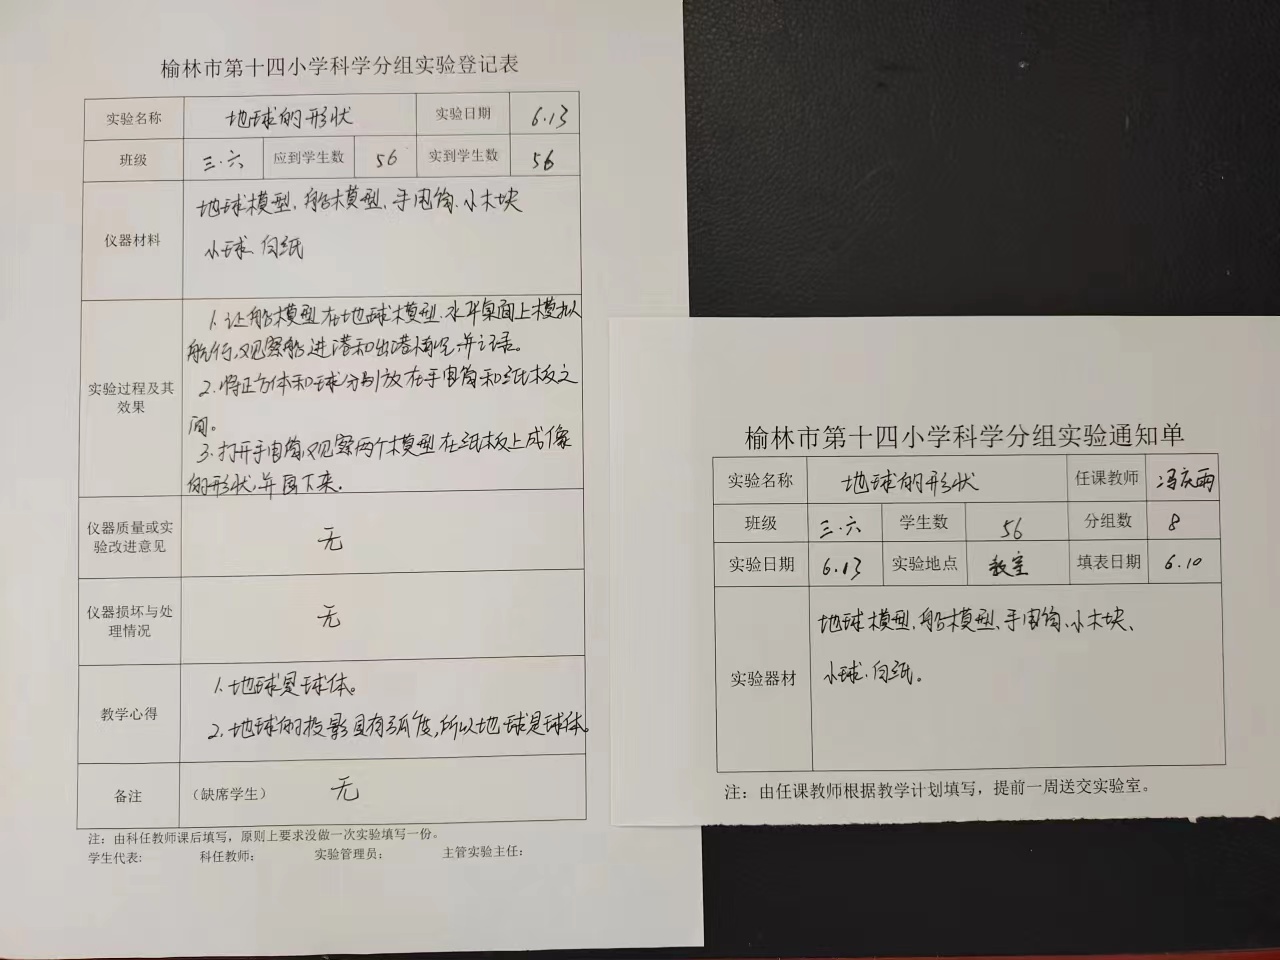 榆林市第十四小学科学分组实验登记表
实验名称 地球的形状 实验日期 6.13
班级 三.六 应到学生数 56 实到学生数 56
仪器材料
地球模型、船模型、手电筒、小木块
小球、白纸
实验过程及其
效果
1.让船模型在地球模型、水平桌面上模拟
航行,观察船进港和出港情况,并记录。
2.将正方体和球分别放在手电筒和纸板之
间。
3.打开手电筒,观察两个模型在纸板上成像
的形状,并画下来.
仪器质量或实
验改进意见
无
仪器损坏与处
理情况
无
教学心得
1.地球是球体。
2.地球的投影具有弧度,所以地球是球体。
备注 (缺席学生) 无
注:由科任教师课后填写,原则上要求没做一次实验填写一份。
学生代表: 科任教师: 实验管理员: 主管实验主任:
榆林市第十四小学科学分组实验通知单
实验名称 地球的形状 任课教师 冯庆雨
班级 三.六 学生数 56 分组数 8
实验日期 6.13 实验地点 教室 填表日期 6.10
实验器材
地球模型、船模型、手电筒、小木块、
小球、白纸。
注:由任课教师根据教学计划填写,提前一周送交实验室。